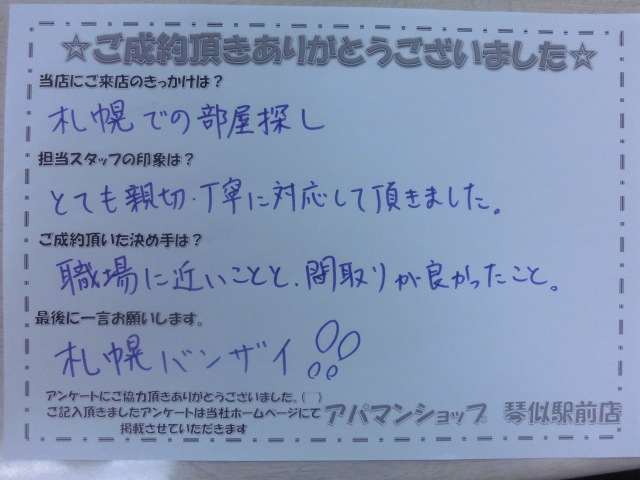 ☆ご成約頂きありがとうございました☆
当店にご来店のきっかけは？
札幌での部屋探し
担当スタッフの印象は？
とても親切・丁寧に対応して頂きました。
ご成約頂いた決め手は？
職場に近いことと、間取りが良かったこと。
最後に一言お願いします。
札幌バンザイ
アンケートにご協力頂きありがとうございました。(￣￣)
ご記入頂きましたアンケートは当社ホームページにて
掲載させていただきます
アパマンショップ 琴似駅前店